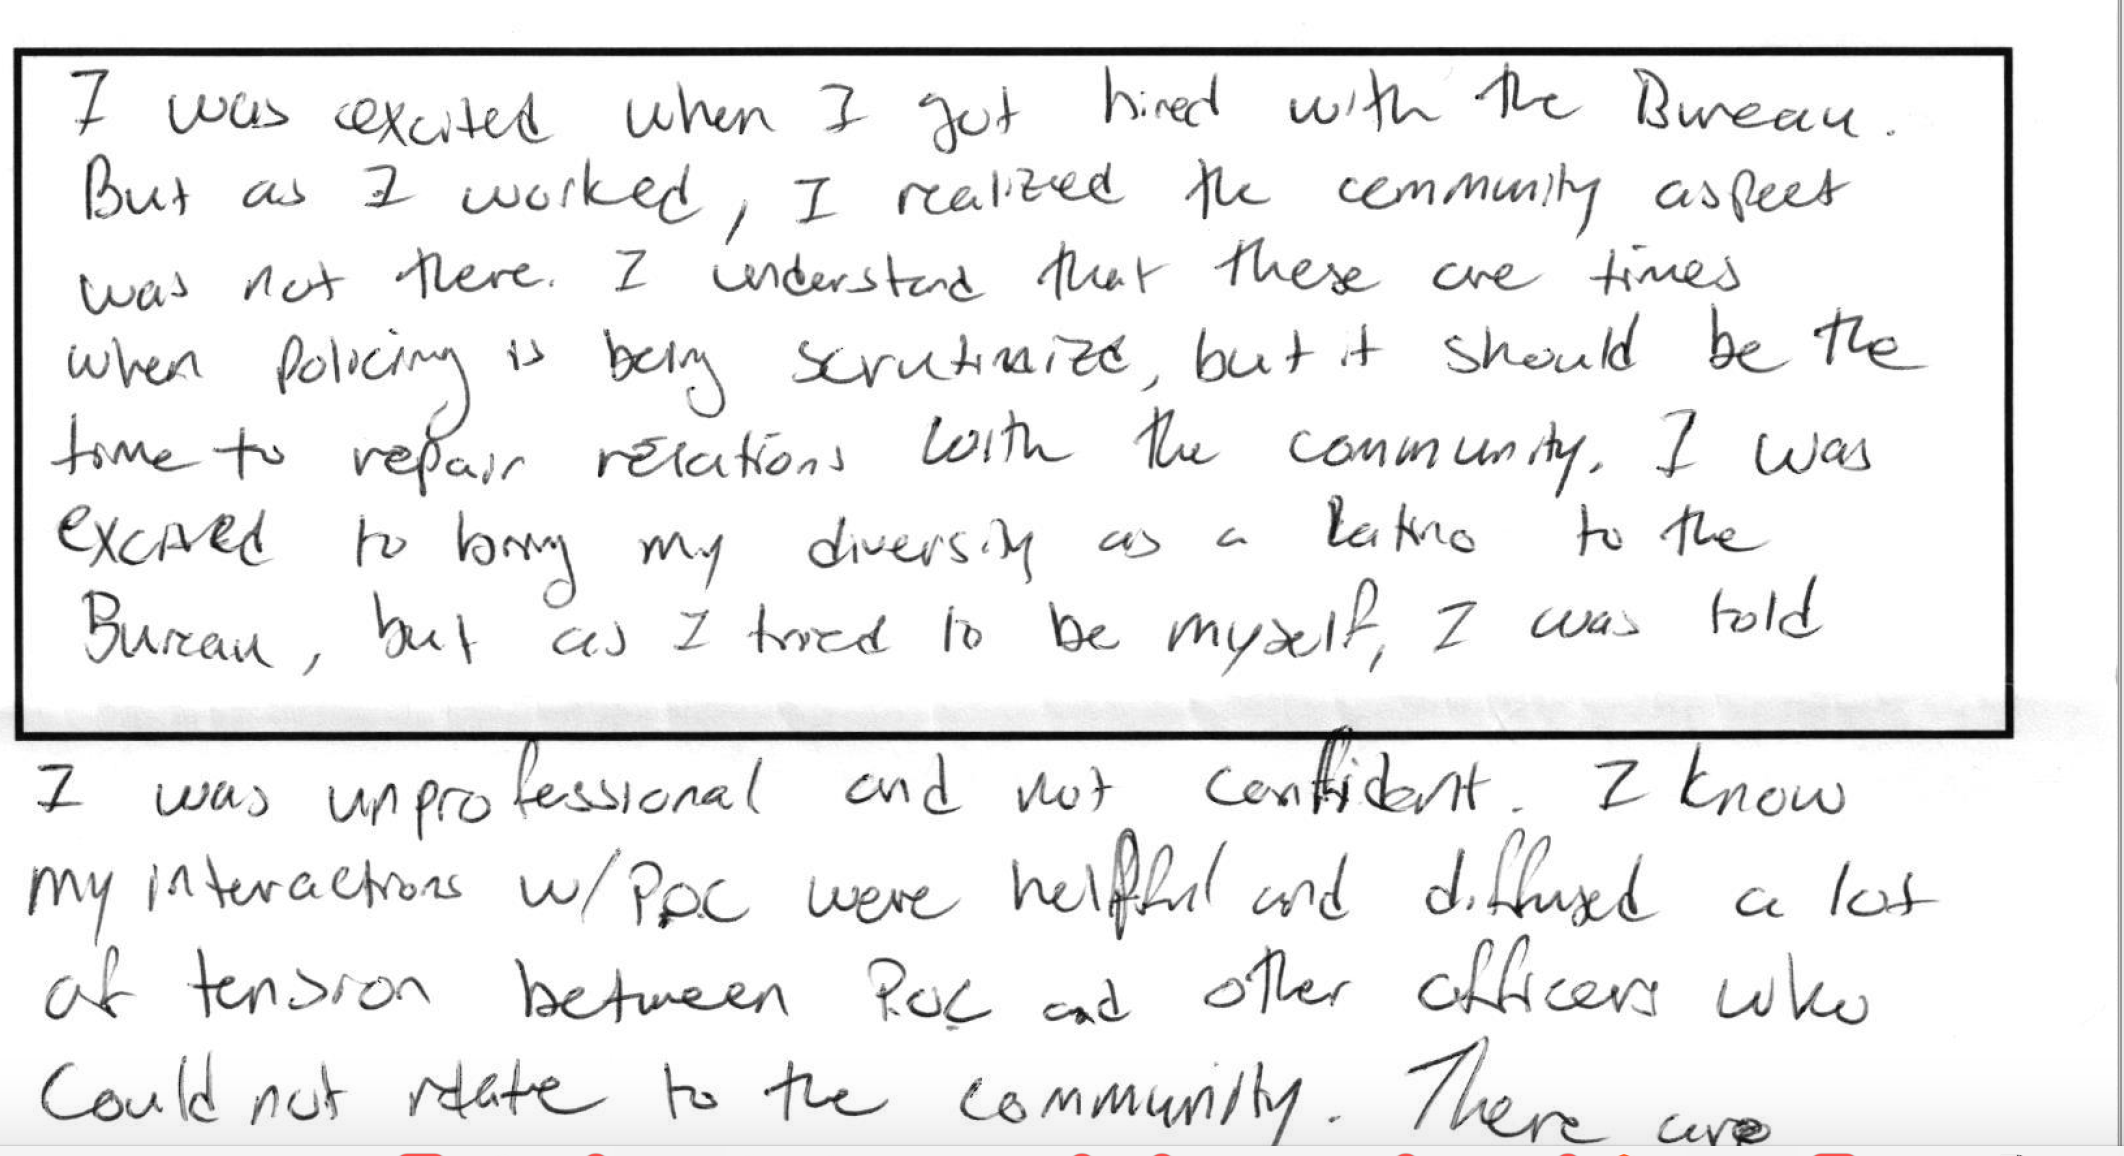 I was excited when I got hired with the Bureau.
But as I worked, I realized the community aspect
was not there. I understand that these are times
when policing is being scrutinize, but it should be the
time to repair relations with the community. I was
excited to bring my diversity as a Latino to the
Bureau, but as I tried to be myself, I was told
I was unprofessional and not confident. I know
my interactions w/ POC were helpful and diffused a lot
of tension between POC and other officers who
could not relate to the community. There are